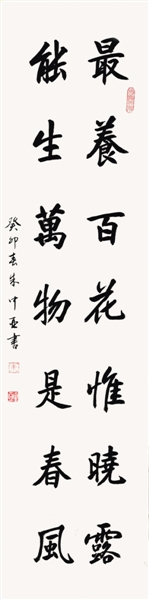 最養百花惟曉露
能生萬物是春風
癸卯春朱叶亚書